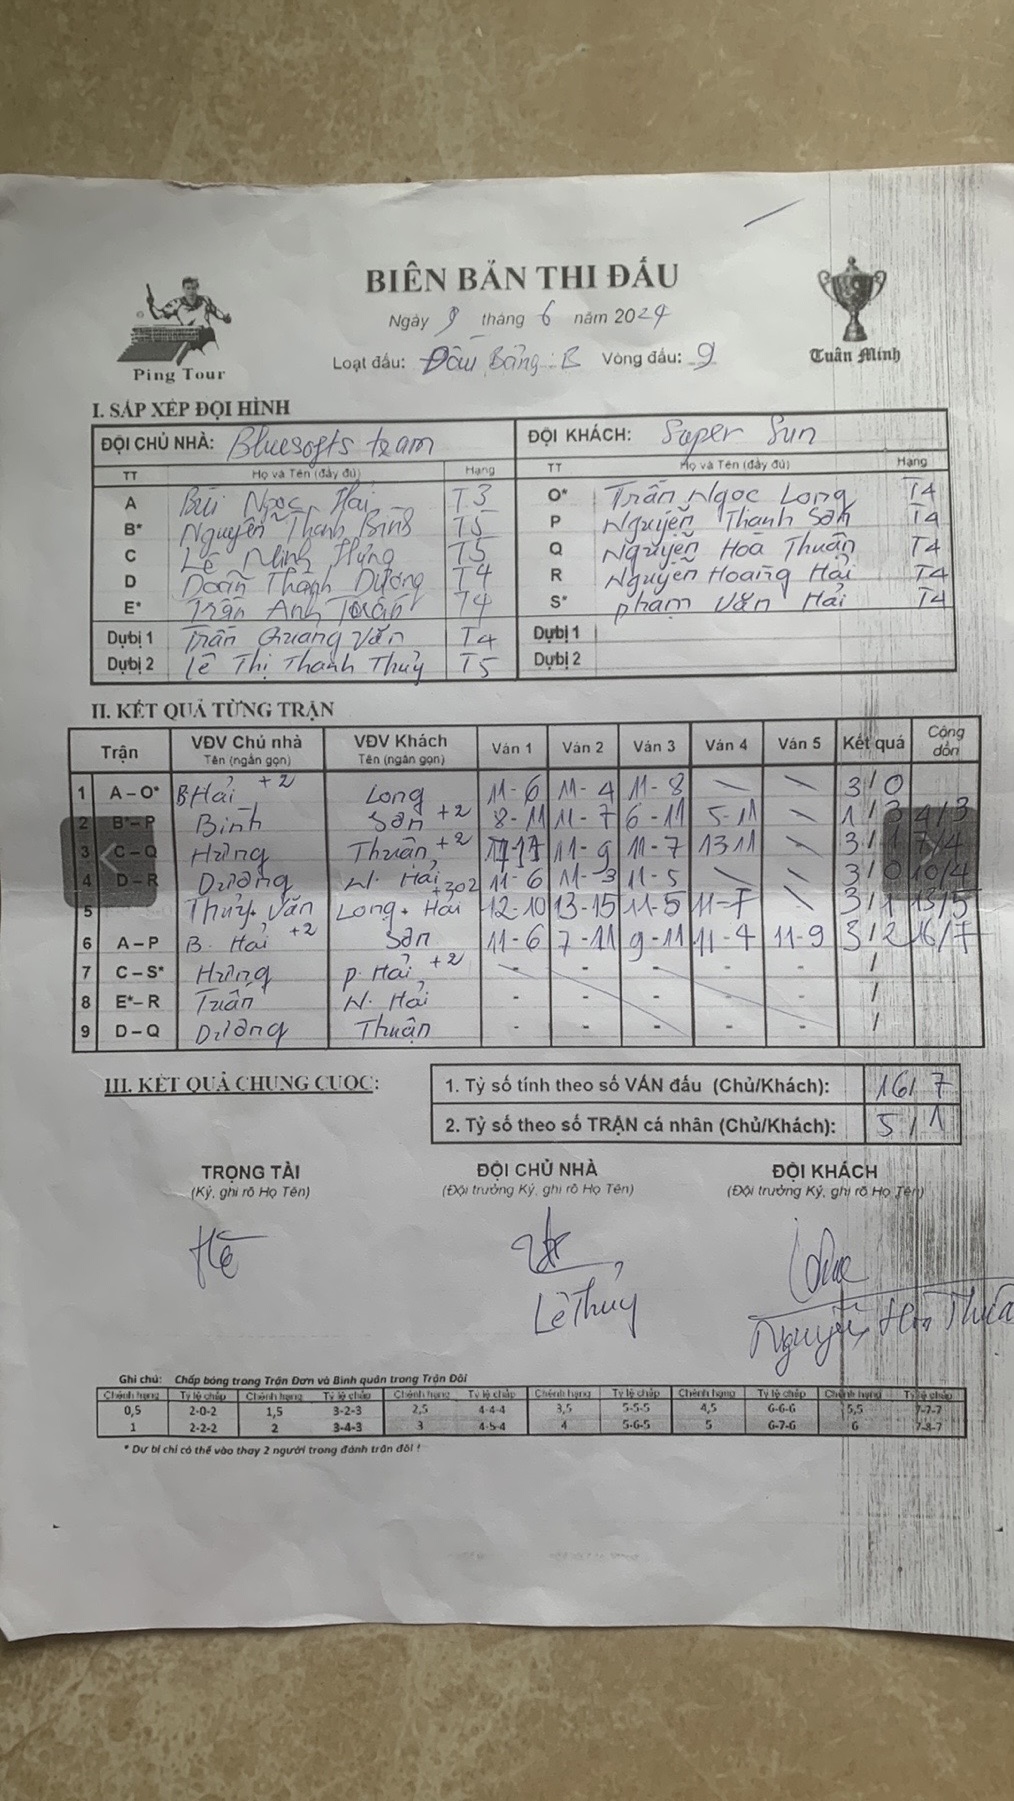 BIÊN BẢN THI ĐẤU
Ngày 9 tháng 6 năm 2024
Loạt đấu: Đấu Bảng: B Vòng đấu: 9
Ping Tour
Tuấn Minh
I. SẮP XẾP ĐỘI HÌNH
ĐỘI CHỦ NHÀ: Bluesofts team ĐỘI KHÁCH: Super Sun
TT Họ và Tên (đầy đủ) Hạng TT Họ và Tên (đầy đủ) Hạng
A Bùi Ngọc Hải T3 O* Trần Ngọc Long T4
B* Nguyễn Thanh Bình T5 P Nguyễn Thanh Sơn T4
C Lê Minh Hưng T5 Q Nguyễn Hoà Thuận T4
D Doãn Thành Dương T4 R Nguyễn Hoàng Hải T4
E* Trần Anh Tuấn T4 S* Phạm Văn Hải T4
Dự bị 1 Trần Quang Văn T4 Dự bị 1
Dự bị 2 Lê Thị Thanh Thuỷ T5 Dự bị 2
II. KẾT QUẢ TỪNG TRẬN
Trận VĐV Chủ nhà VĐV Khách Ván 1 Ván 2 Ván 3 Ván 4 Ván 5 Kết quả Cộng dồn
Tên (ngắn gọn) Tên (ngắn gọn)
1 A – O* B Hải +2 Long 11-6 11-4 11-8 \ \ 3/0
2 B* – P Bình Sơn +2 8-11 11-7 6-11 5-11 \ 1/3 4/3
3 C – Q Hưng Thuân +2 11-9 11-7 13 11 \ 3/1 7/4
4 D – R Dương N. Hải 11-6 11-3 11-5 \ \ 3/0 10/4
5 Thuỷ+ Văn Long + Hải +202 12-10 13-15 11-5 11-7 \ 3/1 13/5
6 A – P B. Hải +2 Sơn 11-6 7-11 9-11 11-4 11-9 3/2 16/7
7 C – S* Hưng P. Hải +2 - - - - - /
8 E* – R Tuấn N. Hải - - - - - /
9 D – Q Dương Thuận - - - - - /
III. KẾT QUẢ CHUNG CUỘC:
1. Tỷ số tính theo số VÁN đấu (Chủ/Khách): 16/7
2. Tỷ số theo số TRẬN cá nhân (Chủ/Khách): 5/1
TRỌNG TÀI ĐỘI CHỦ NHÀ ĐỘI KHÁCH
(Ký, ghi rõ Họ Tên) (Đội trưởng Ký, ghi rõ Họ Tên) (Đội trưởng Ký, ghi rõ Họ Tên)
Lê Thuỷ
Nguyễn Hoà
Ghi chú: Chấp bóng trong Trận Đơn và Bình quân trong Trận Đôi
Chênh hạng Tỷ lệ chấp Chênh hạng Tỷ lệ chấp Chênh hạng Tỷ lệ chấp Chênh hạng Tỷ lệ chấp Chênh hạng Tỷ lệ chấp Chênh hạng Tỷ lệ chấp
0,5 2-0-2 1,5 3-2-3 2,5 4-4-4 3,5 5-5-5 4,5 6-6-6 5,5 7-7-7
1 2-2-2 2 3-4-3 3 4-5-4 4 5-6-5 5 6-7-6 6 7-8-7
* Dự bị chỉ có thể vào thay 2 người trong đánh trận đôi !